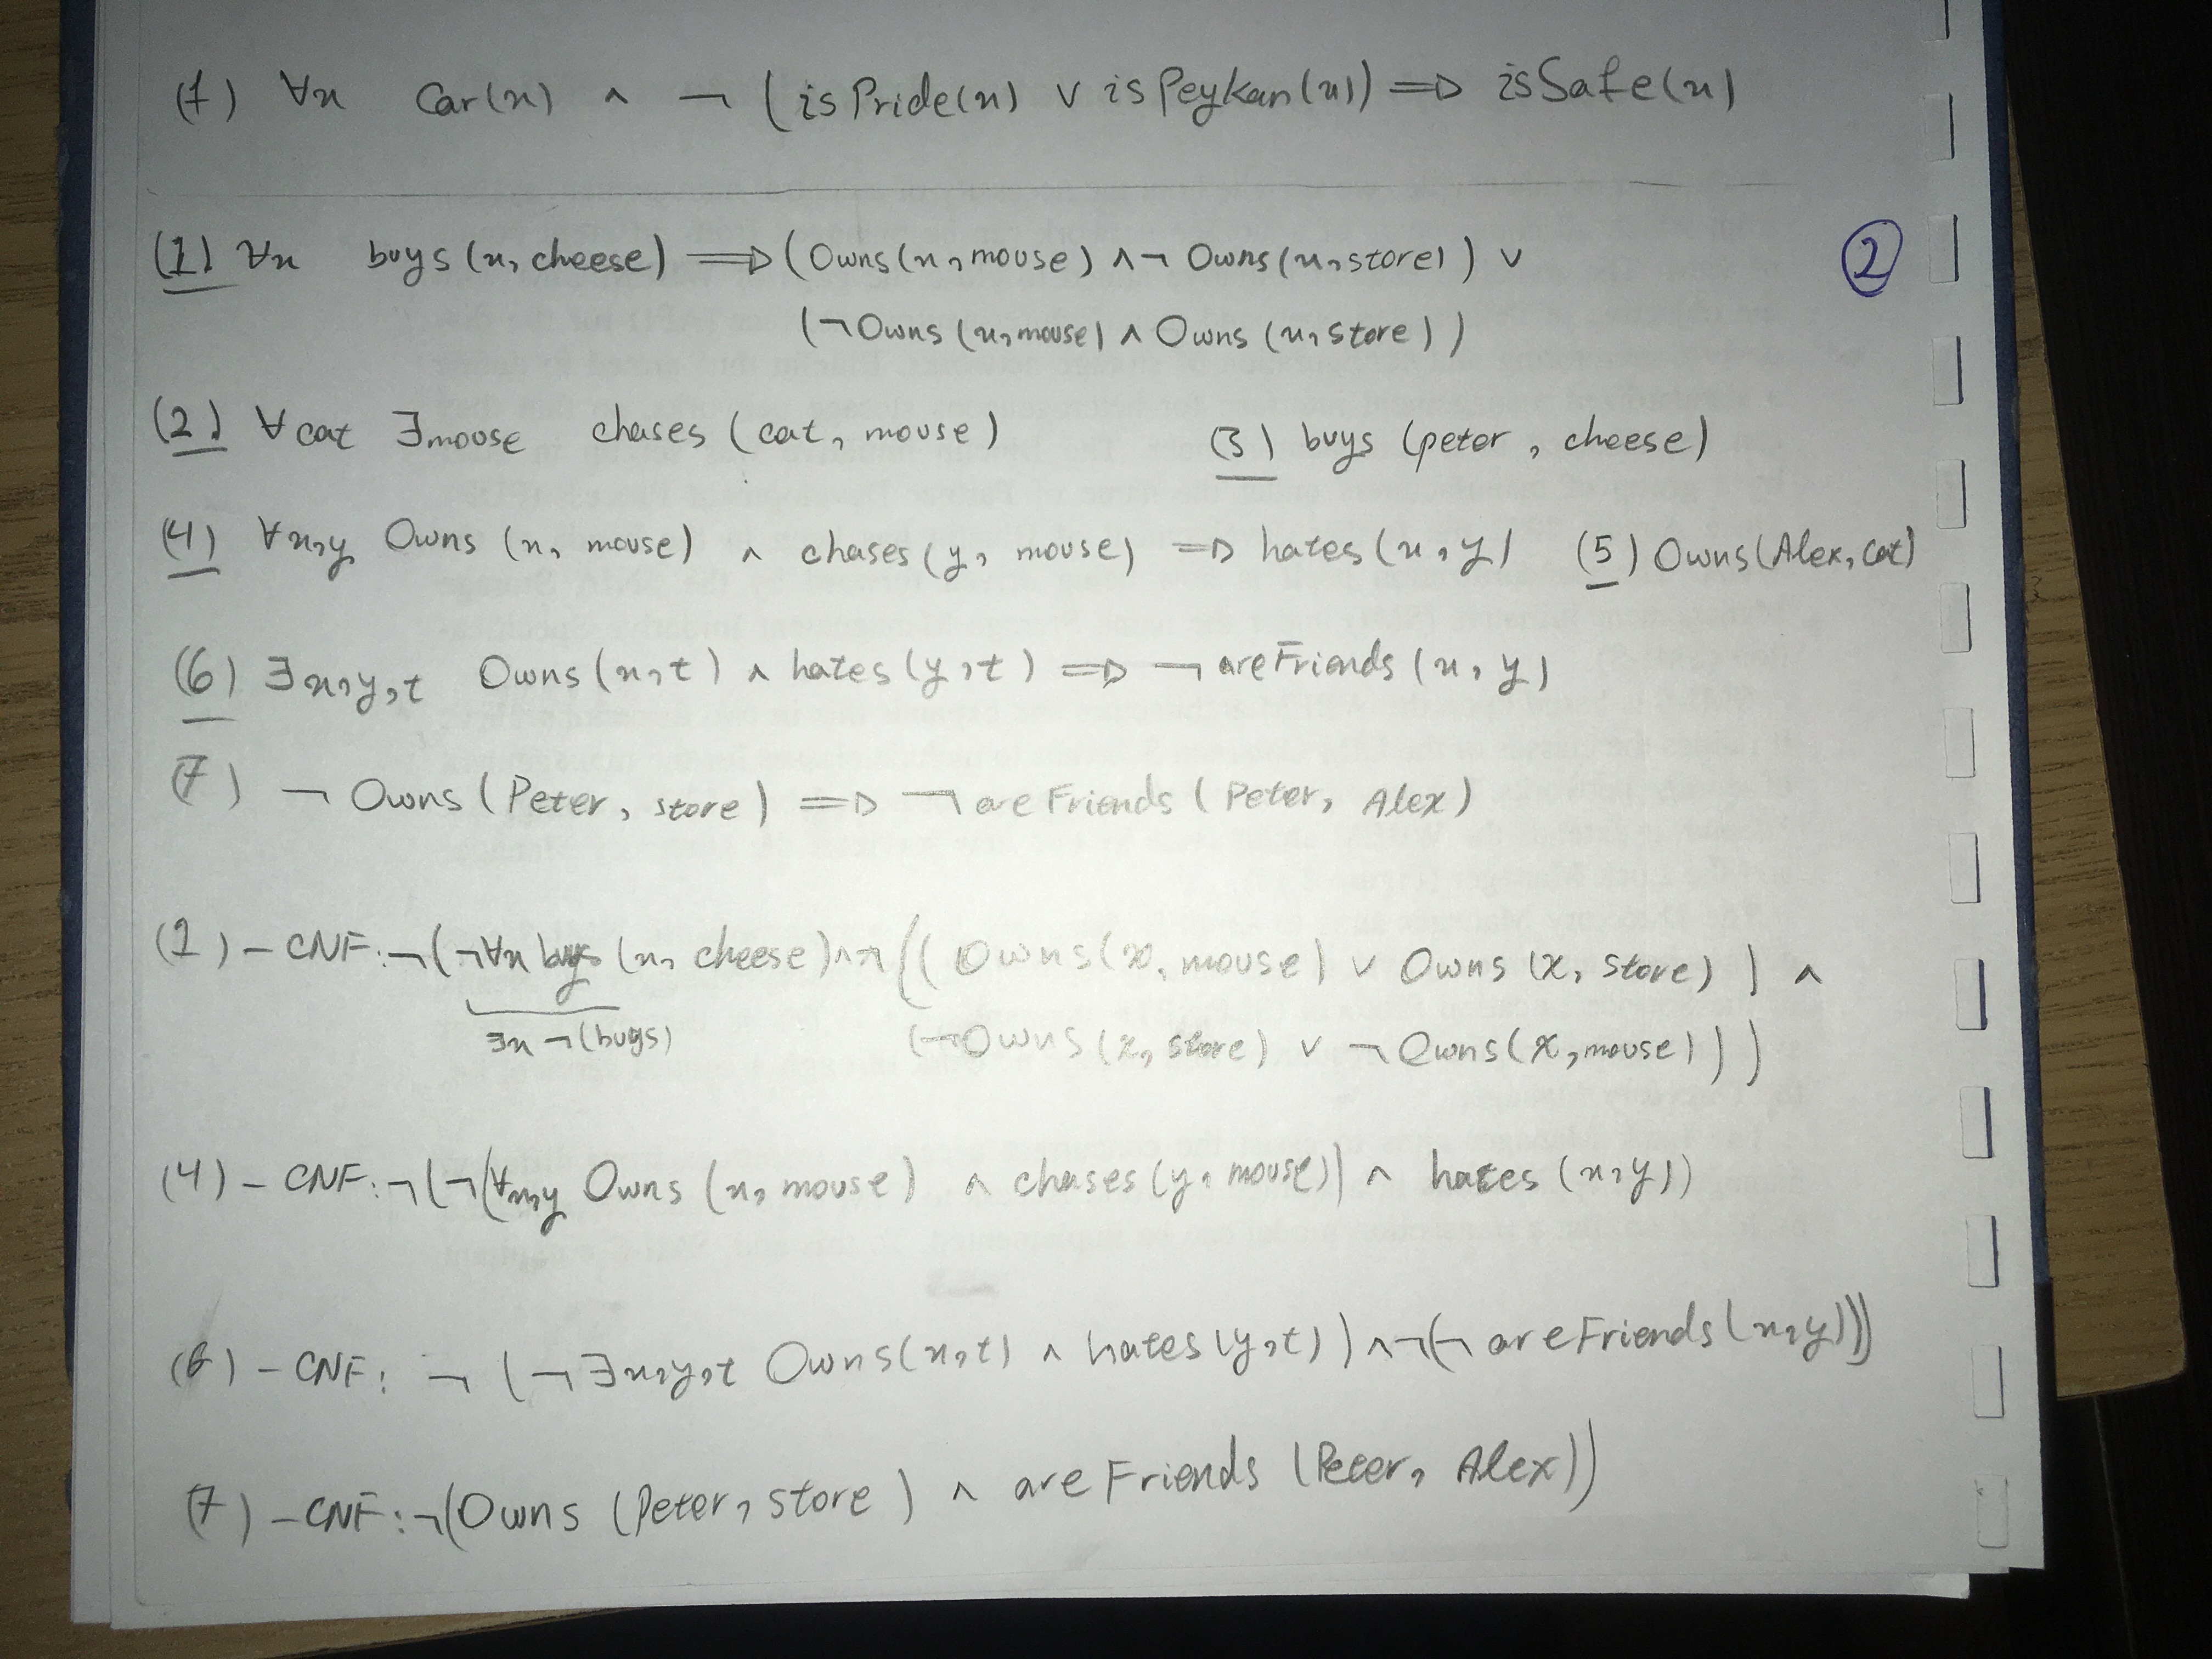 (7) ∀x Car(x) ∧ ¬ (isPride(x) ∨ isPeykan(x)) => isSafe(x)
(1) ∀x buys(x, cheese) => (Owns(x, mouse) ∧ ¬ Owns(x, store)) ∨
②
(¬Owns(x, mouse) ∧ Owns(x, store))
(2) ∀cat ∃mouse chases(cat, mouse) (3) buys(peter, cheese)
(4) ∀x,y Owns(x, mouse) ∧ chases(y, mouse) => hates(x, y) (5) Owns(Alex, Cat)
(6) ∃x,y,t Owns(x,t) ∧ hates(y,t) => ¬areFriends(x, y)
(7) ¬Owns(Peter, store) => ¬areFriends(Peter, Alex)
(1)-CNF: ¬(¬∀x buys(x, cheese)∧¬((Owns(x, mouse) ∨ Owns(x, store)) ∧
∃x ¬(buys) (¬Owns(x, store) ∨ ¬Owns(x, mouse)))
(4)-CNF: ¬(¬(∀x,y Owns(x, mouse) ∧ chases(y, mouse)) ∧ hates(x,y))
(6)-CNF: ¬(¬∃x,y,t Owns(x,t) ∧ hates(y,t)) ∧¬(¬areFriends(x,y)))
(7)-CNF: ¬(Owns(Peter, store) ∧ areFriends(Peter, Alex))